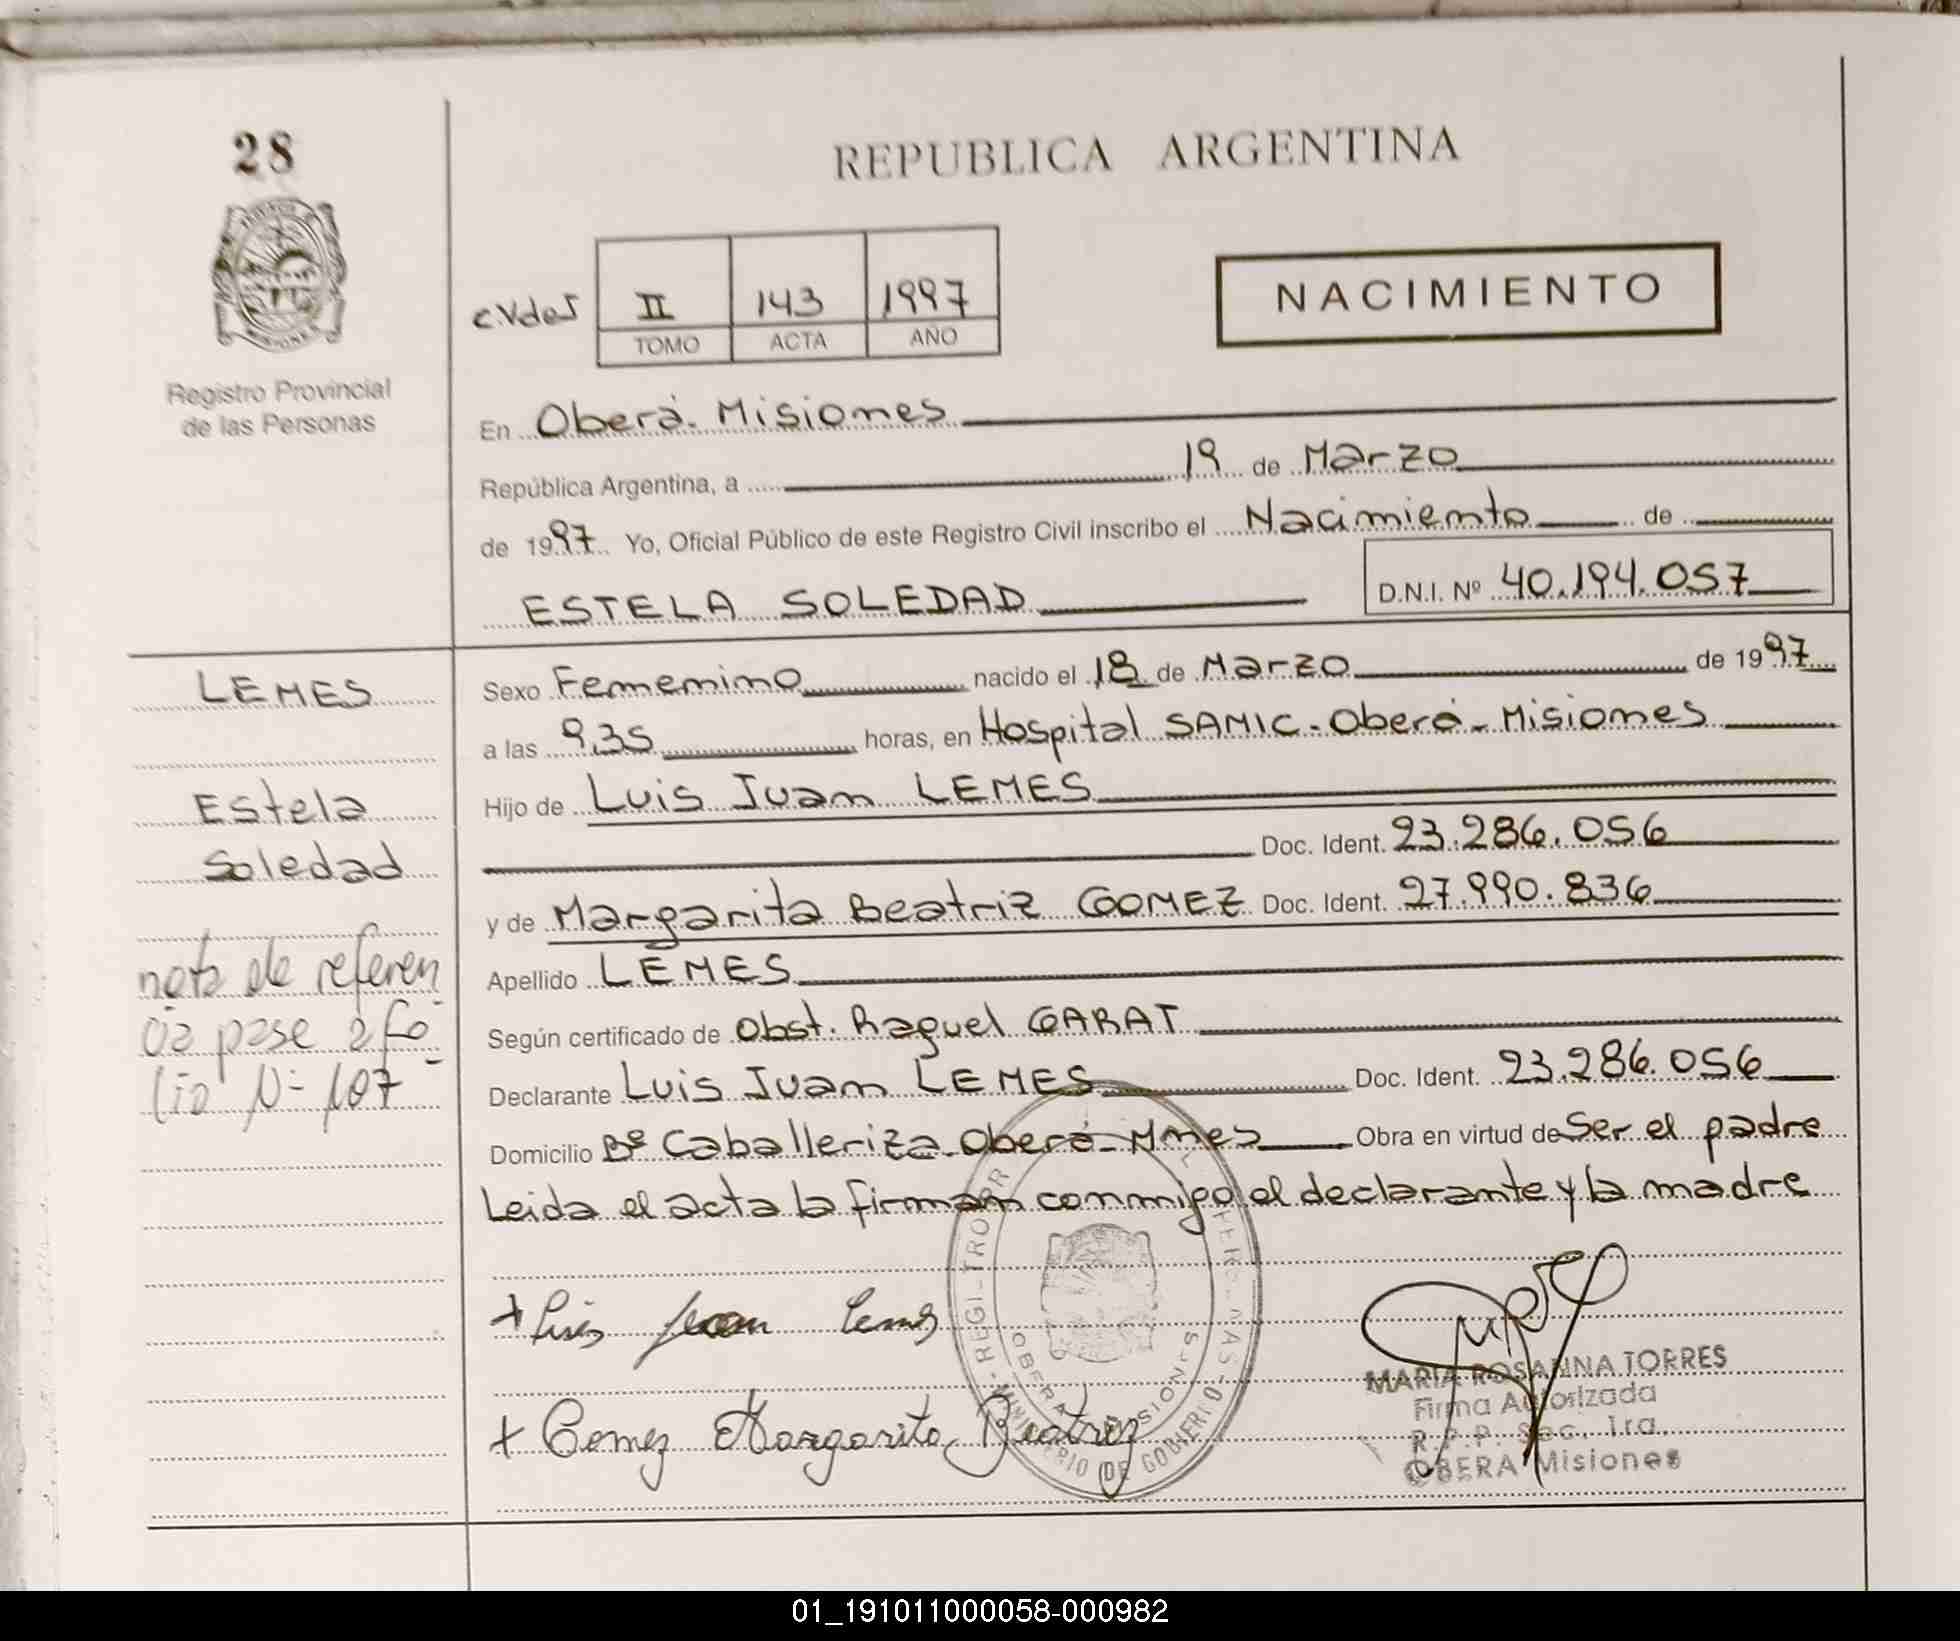 28
REPUBLICA ARGENTINA
c.VdeS II 143 1997
TOMO ACTA AÑO
NACIMIENTO
Registro Provincial
de las Personas
En Oberá. Misiones
República Argentina, a 19 de Marzo
de 1997 Yo, Oficial Público de este Registro Civil inscribo el Nacimiento de
ESTELA SOLEDAD D.N.I. Nº 40.194.057
LEMES
Estela
Soledad
nota de referen
cia pase a fo
lio Nº 107
Sexo Femenino nacido el 18 de Marzo de 1997
a las 9,35 horas, en Hospital SAMIC - Oberá - Misiones
Hijo de Luis Juan LEMES
Doc. Ident. 23.286.056
y de Margarita Beatriz GOMEZ Doc. Ident. 27.990.836
Apellido LEMES
Según certificado de Obst. Raquel GARAT
Declarante Luis Juan LEMES Doc. Ident. 23.286.056
Domicilio Bº Caballeriza Oberá - Mnes Obra en virtud de Ser el padre
Leida el acta la firman conmigo el declarante y la madre
+ Luis Juan Lemes
+ Gomez Margarita Beatriz
MARIA ROSANNA TORRES
Firma Autorizada
R.P.P. Sec. 1ra.
OBERA Misiones
MINISTERIO DE GOBIERNO
OBERA MISIONES
01_191011000058-000982